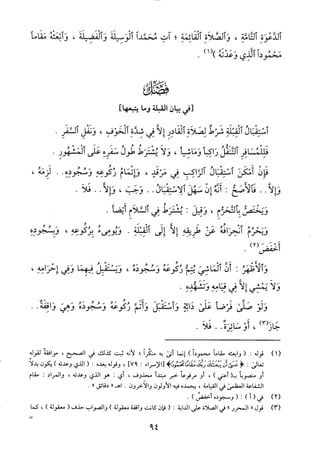 الدَّعْوَةِ التَّامَّةِ ، وَالصَّلَاةِ الْقَائِمَةِ ؛ آتِ مُحَمَّداً الْوَسِيلَةَ وَالْفَضِيلَةَ ، وَابْعَثْهُ مَقَاماً
مَحْمُوداً الَّذِي وَعَدْتَهُ )(١) .
فَصْلٌ
[في بيان القبلة وما يتبعها]
اسْتِقْبَالُ الْقِبْلَةِ شَرْطٌ لِصَلَاةِ الْقَادِرِ إِلَّا فِي شِدَّةِ الْخَوْفِ ، وَنَفْلِ السَّفَرِ .
فَلِلْمُسَافِرِ التَّنَفُّلُ رَاكِباً وَمَاشِياً ، وَلَا يُشْتَرَطُ طُولُ سَفَرِهِ عَلَى الْمَشْهُورِ .
فَإِنْ أَمْكَنَ اسْتِقْبَالُ الرَّاكِبِ فِي مَرْقَدٍ ، وَإِتْمَامُ رُكُوعِهِ وَسُجُودِهِ .. لَزِمَهُ ،
وَإِلَّا .. فَالْأَصَحُّ : أَنَّهُ إِنْ سَهُلَ الِاسْتِقْبَالُ .. وَجَبَ ، وَإِلَّا .. فَلَا .
وَيَخْتَصُّ بِالتَّحَرُّمِ ، وَقِيلَ : يُشْتَرَطُ فِي السَّلَامِ أَيْضاً .
وَيَحْرُمُ انْحِرَافُهُ عَنْ طَرِيقِهِ إِلَّا إِلَى الْقِبْلَةِ . وَيُومِىءُ بِرُكُوعِهِ ، وَسُجُودِهِ
أَخْفَضَ(٢) .
وَالْأَظْهَرُ : أَنَّ الْمَاشِيَ يُتِمُّ رُكُوعَهُ وَسُجُودَهُ ، وَيَسْتَقْبِلُ فِيهِمَا وَفِي إِحْرَامِهِ ،
وَلَا يَمْشِي إِلَّا فِي قِيَامِهِ وَتَشَهُّدِهِ .
وَلَوْ صَلَّىٰ فَرْضاً عَلَىٰ دَابَّةٍ وَاسْتَقْبَلَ وَأَتَمَّ رُكُوعَهُ وَسُجُودَهُ وَهِيَ وَاقِفَةٌ ..
جَازَ(٣) ، أَوْ سَائِرَةٌ .. فَلَا .
(١) قوله : ( وابعثه مقاماً محموداً ) إنما أتى به منكَّراً ، لأنه ثبت كذلك في الصحيح ، موافقة لقوله
تعالىٰ : ﴿ عَسَىٰ أَن يَبْعَثَكَ رَبُّكَ مَقَامًا مَّحْمُودًا ﴾ [الإسراء : ٧٩] ، وقوله بعده : ( الذي وعدته ) يكون بدلاً
أو منصوباً بـ( أعني ) ، أو مرفوعاً خبر مبتدأ محذوف ، أي : هو الذي وعدته ، والمراد : مقام
الشفاعة العظمىٰ في القيامة ، يحمده فيه الأولون والآخرون . اهـ « دقائق » .
(٢) في (أ) : ( وسجوده أخفض ) .
(٣) قول « المحرر » في الصلاة على الدابة : ( فإن كانت واقفة معقولة ) والصواب حذف ( معقولة ) ، كما
٩٤